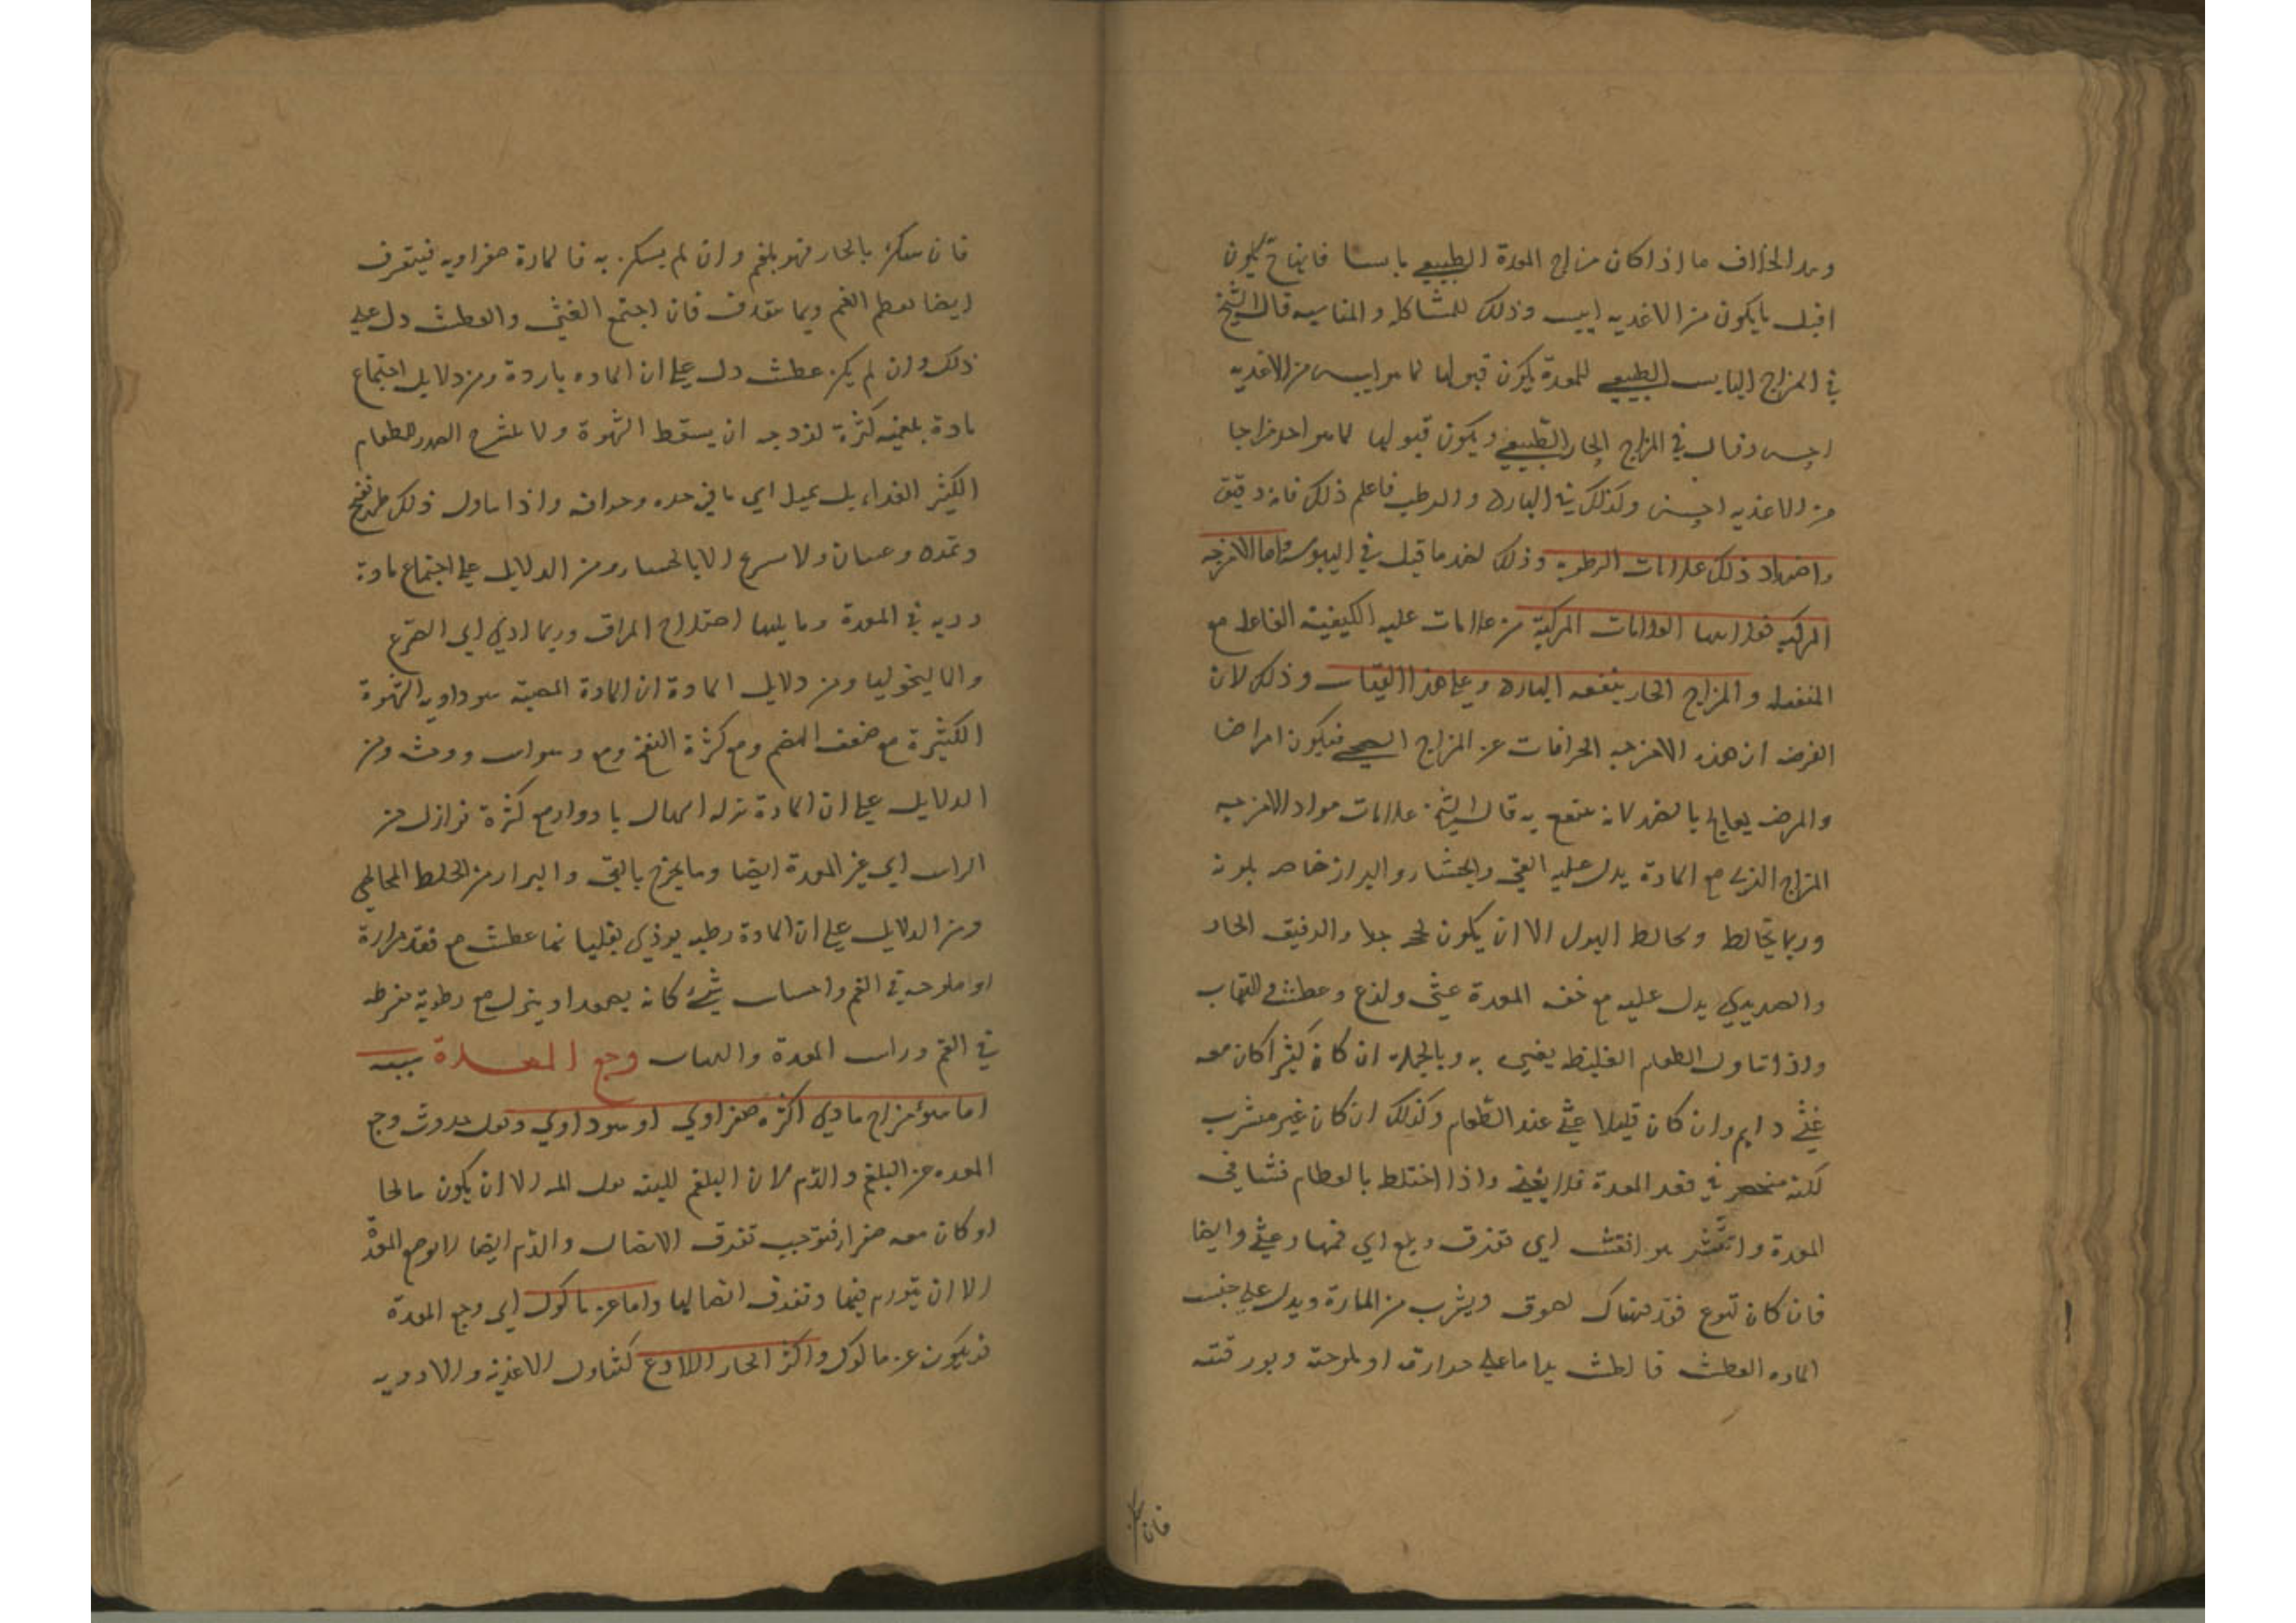 وهذا بخلاف ما اذا كان مزاج المعدة الطبيعي يابسا فانها ح تكون
اقبل ما يكون من الاغذيه ايبس وذلك للمشاكله والمناسبه قال الشيخ
في المزاج اليابس الطبيعي للمعدة يكون قبولها لما هو ايبس من الاغديه
احسن وقال في المزاج الحار الطبيعي ويكون قبولها لما هو احر مزاجا
من الاغذيه احسن وكذلك في البارد والرطب فاعلم ذلك فانه دقيق
واضداد ذلك علامات الرطوبه وذلك لضد ما قيل في اليبوسة واما الامزجه
المركبه فدلايلها العلامات المركبة من علامات عليه الكيفية الفاعله مع
المنفعله والمزاج الحار ينفعه البارد وعلي هذا القياس وذلك لان
الفرض ان هذه الامزجه انحرافات عن المزاج الصحي فيكون امراضا
والمرض يعالج بالضد لانه ينتفع به قال الشيخ علامات مواد الامزجه
المزاج الذي مع المادة يدل عليه القي والجشا والبراز خاصه بلونه
وربما يخالط ويخالط البول الا ان يكون لحج جدا والدقيق الحار
والصديدي يدل عليه مع خف المعدة غثي ولذع وعطش والتهاب
واذا تناول الطعام الغليظ يغثي به وبالجملة ان كان كثيرا كان معه
غثي دايم وان كان قليلا غثي عند الطعام وكذلك ان كان غير مشرب
لكنه منحصر في قعر المعدة فلا يغثي واذا اختلط بالطعام فشا في
المعدة وانتشر هو انفش اي تفرق وبلغ الي فمها وغثي وايضا
فان كان تهوع فقد فهناك لصوق وتشرب من المادة ويدل علي جنس
الماده العطش فالعطش يدل اما علي حرارته او ملوحته وبورقيته
فان سكن
فان سكن بالحار فهو بلغم وان لم يسكن به فالمادة صفراويه فيتعرف
ايضا بطعم الفم وبما يقذف فان اجتمع الغثي والعطش دل علي
ذلك وان لم يكن عطش دل علي ان الماده باردة ومن دلايل اجتماع
مادة بلغميه كثرة لزوجه ان يسقط الشهوة ولا ينشرح الصدر للطعام
الكثير الغذاء بل يميل الي ما فيه حده وحرافه واذا تناول ذلك ظهر نفخ
وتمدد وغثيان ولا يستريح الا بالجشا ومن الدلايل علي اجتماع مادة
رديه في المعدة وما يليها اختلاج المراق وربما ادي الي الصرع
والماليخوليا ومن دلايل المادة ان المادة المصبه سوداويه الشهوة
الكثيرة مع ضعف الهضم ومع كثرة النفخ ومع وسواس ووحشه ومن
الدلايل علي ان المادة نزله اسهال بادوار مع كثرة نوازل من
الراس الي غير المعدة ايضا وما يخرج بالقي والبراز من الخلط المخاطي
ومن الدلايل علي ان المادة رطبه يوذي بغليانها عطش مع فقد مرارة
او ملوحه في الفم واحساس شيء كانه يصعد او ينزل مع رطوبة مفرطه
في الفم وراس المعدة واللهاث وجع المعدة سببه
اما سوء مزاج مادي اكثره صفراوي او سوداوي ويقل حدوث وجع
المعده عن البلغم والدم لان البلغم للينه يقل المه الا ان يكون مالحا
او كان معه صفرا فتوجب تفرق الاتصال والدم ايضا لا يوجع المعدة
الا ان يتورم فيها وتفرق اتصالها واما عن ماكول اي وجع المعدة
قد يكون عن ماكول واكثره الحار اللاذع كتناول الاغذية والادويه